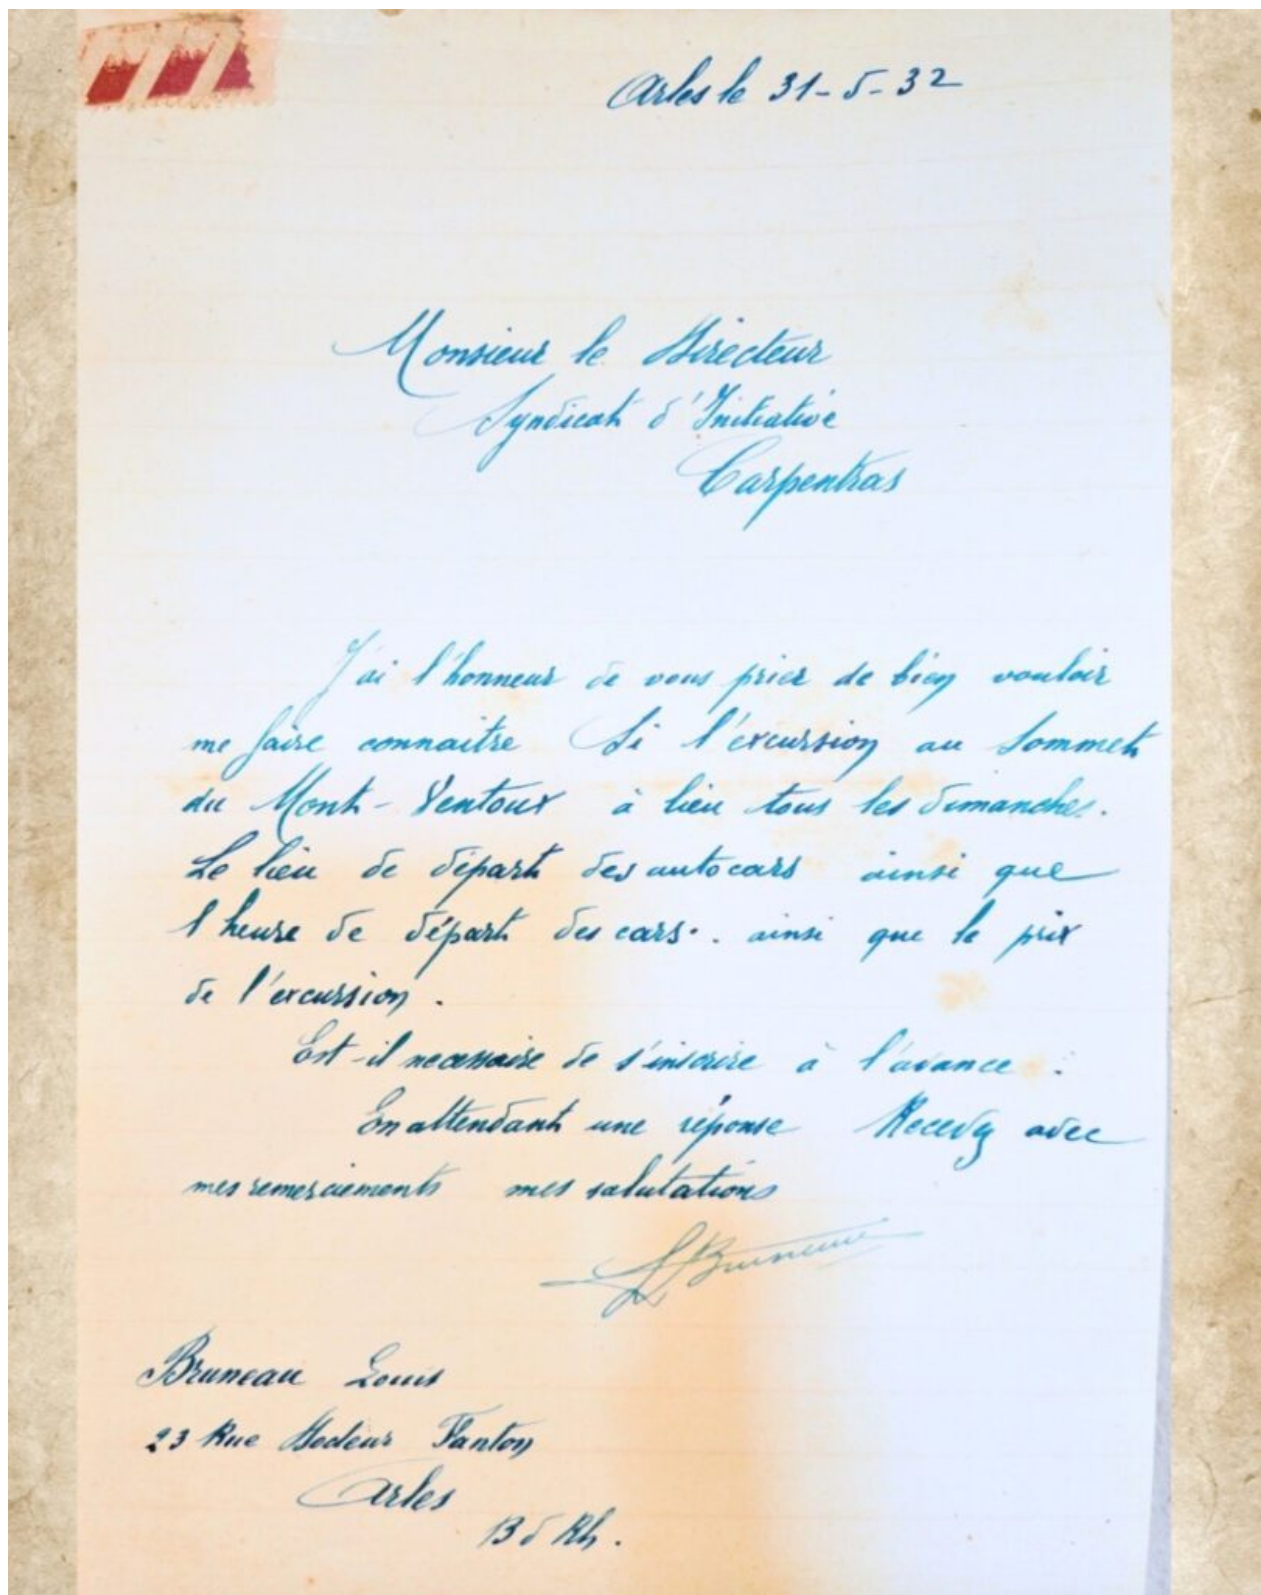 Arles le 31-5-32
Monsieur le Directeur
Syndicat d'Initiative
Carpentras
J'ai l'honneur de vous prier de bien vouloir
me faire connaitre Si l'excursion au Sommet
du Mont-Ventoux à lieu tous les dimanches.
Le lieu de départ des autocars ainsi que
l'heure de départ des cars. . ainsi que le prix
de l'excursion.
Est-il necessaire de s'inscrire à l'avance :
En attendant une réponse Recevez avec
mes remerciements mes salutations
LBruneau
Bruneau Louis
23 Rue Docteur Fanton
Arles
B d Rh.